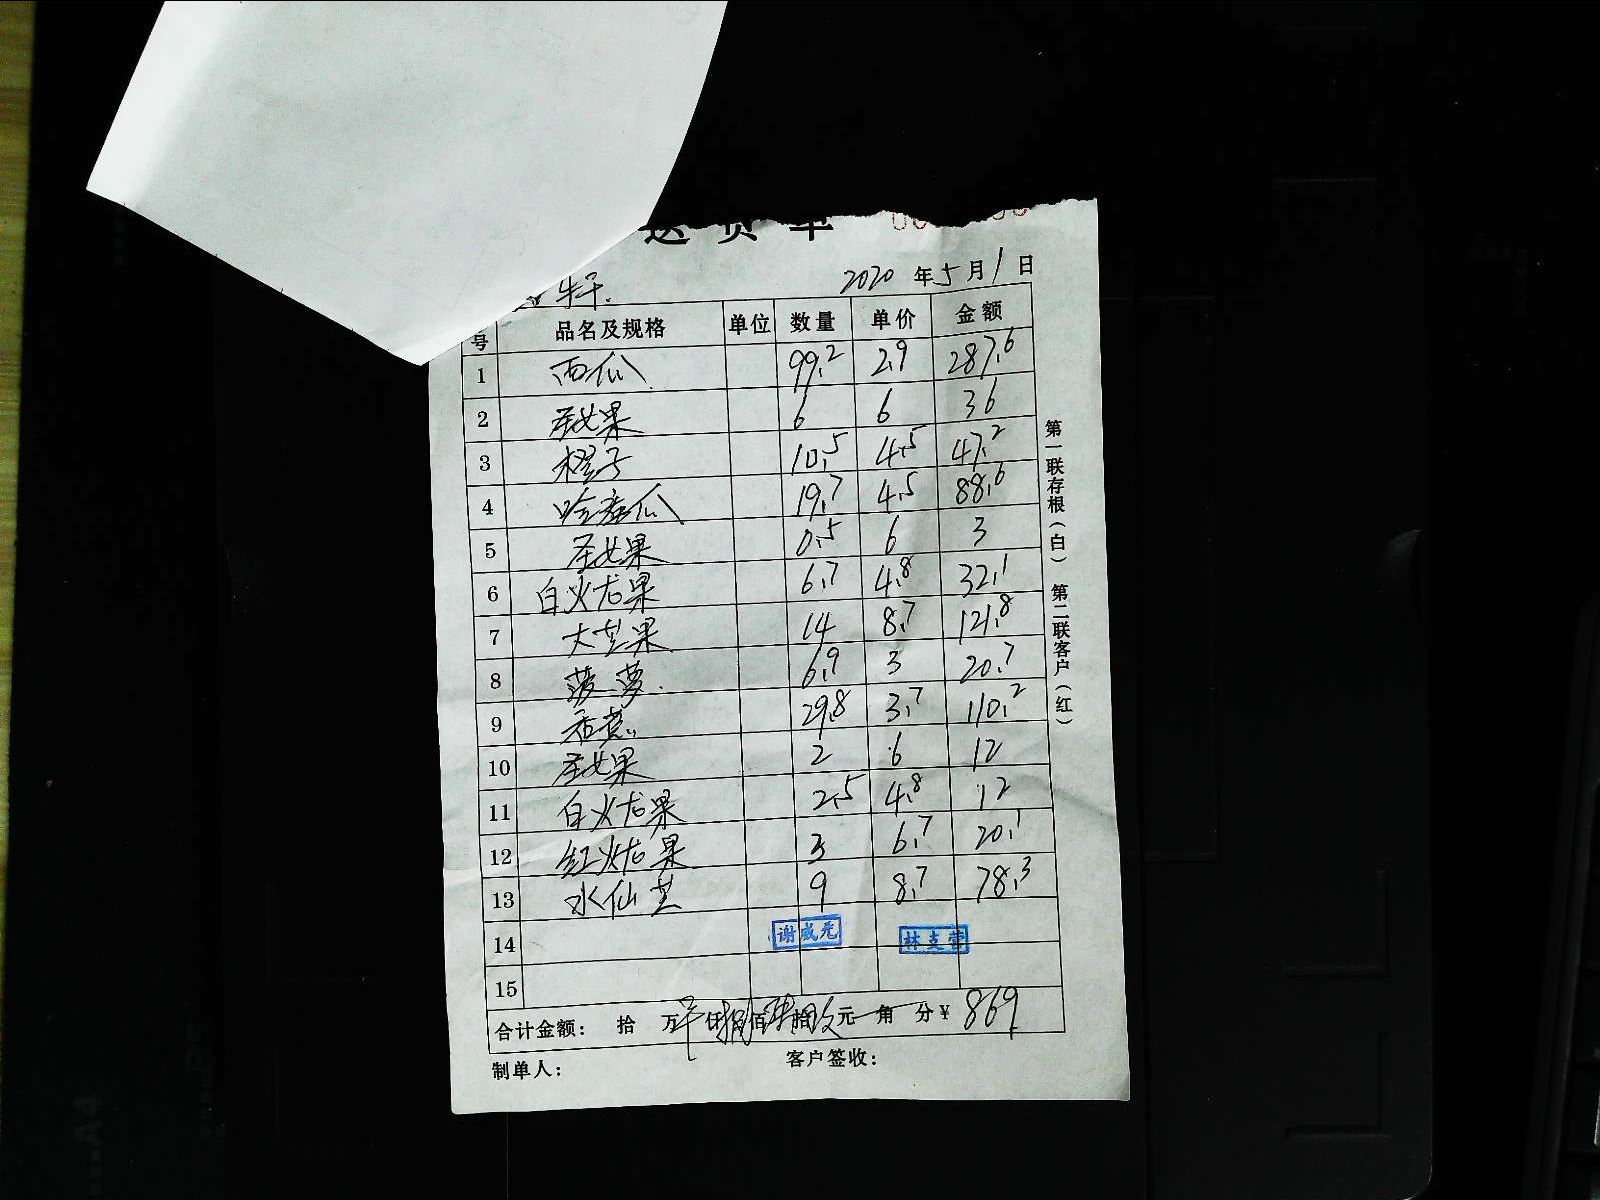 送货单
2020 年 5 月 1 日
号 品名及规格 单位 数量 单价 金额
1 西瓜 99.2 2.9 287.6
2 圣女果 6 6 36
3 橙子 10.5 4.5 47.2
4 哈密瓜 19.7 4.5 88.6
5 圣女果 0.5 6 3
6 白火龙果 6.7 4.8 32.1
7 大芒果 14 8.7 121.8
8 菠萝 6.9 3 20.7
9 香蕉 29.8 3.7 110.2
10 圣女果 2 6 12
11 白火龙果 2.5 4.8 12
12 红火龙果 3 6.7 20.1
13 水仙芒 9 8.7 78.3
14 谢成元 林支营
15
合计金额: 拾 万 仟 捌佰 陆拾 玖元 角 分 ¥ 869
制单人: 客户签收:
第一联存根(白) 第二联客户(红)